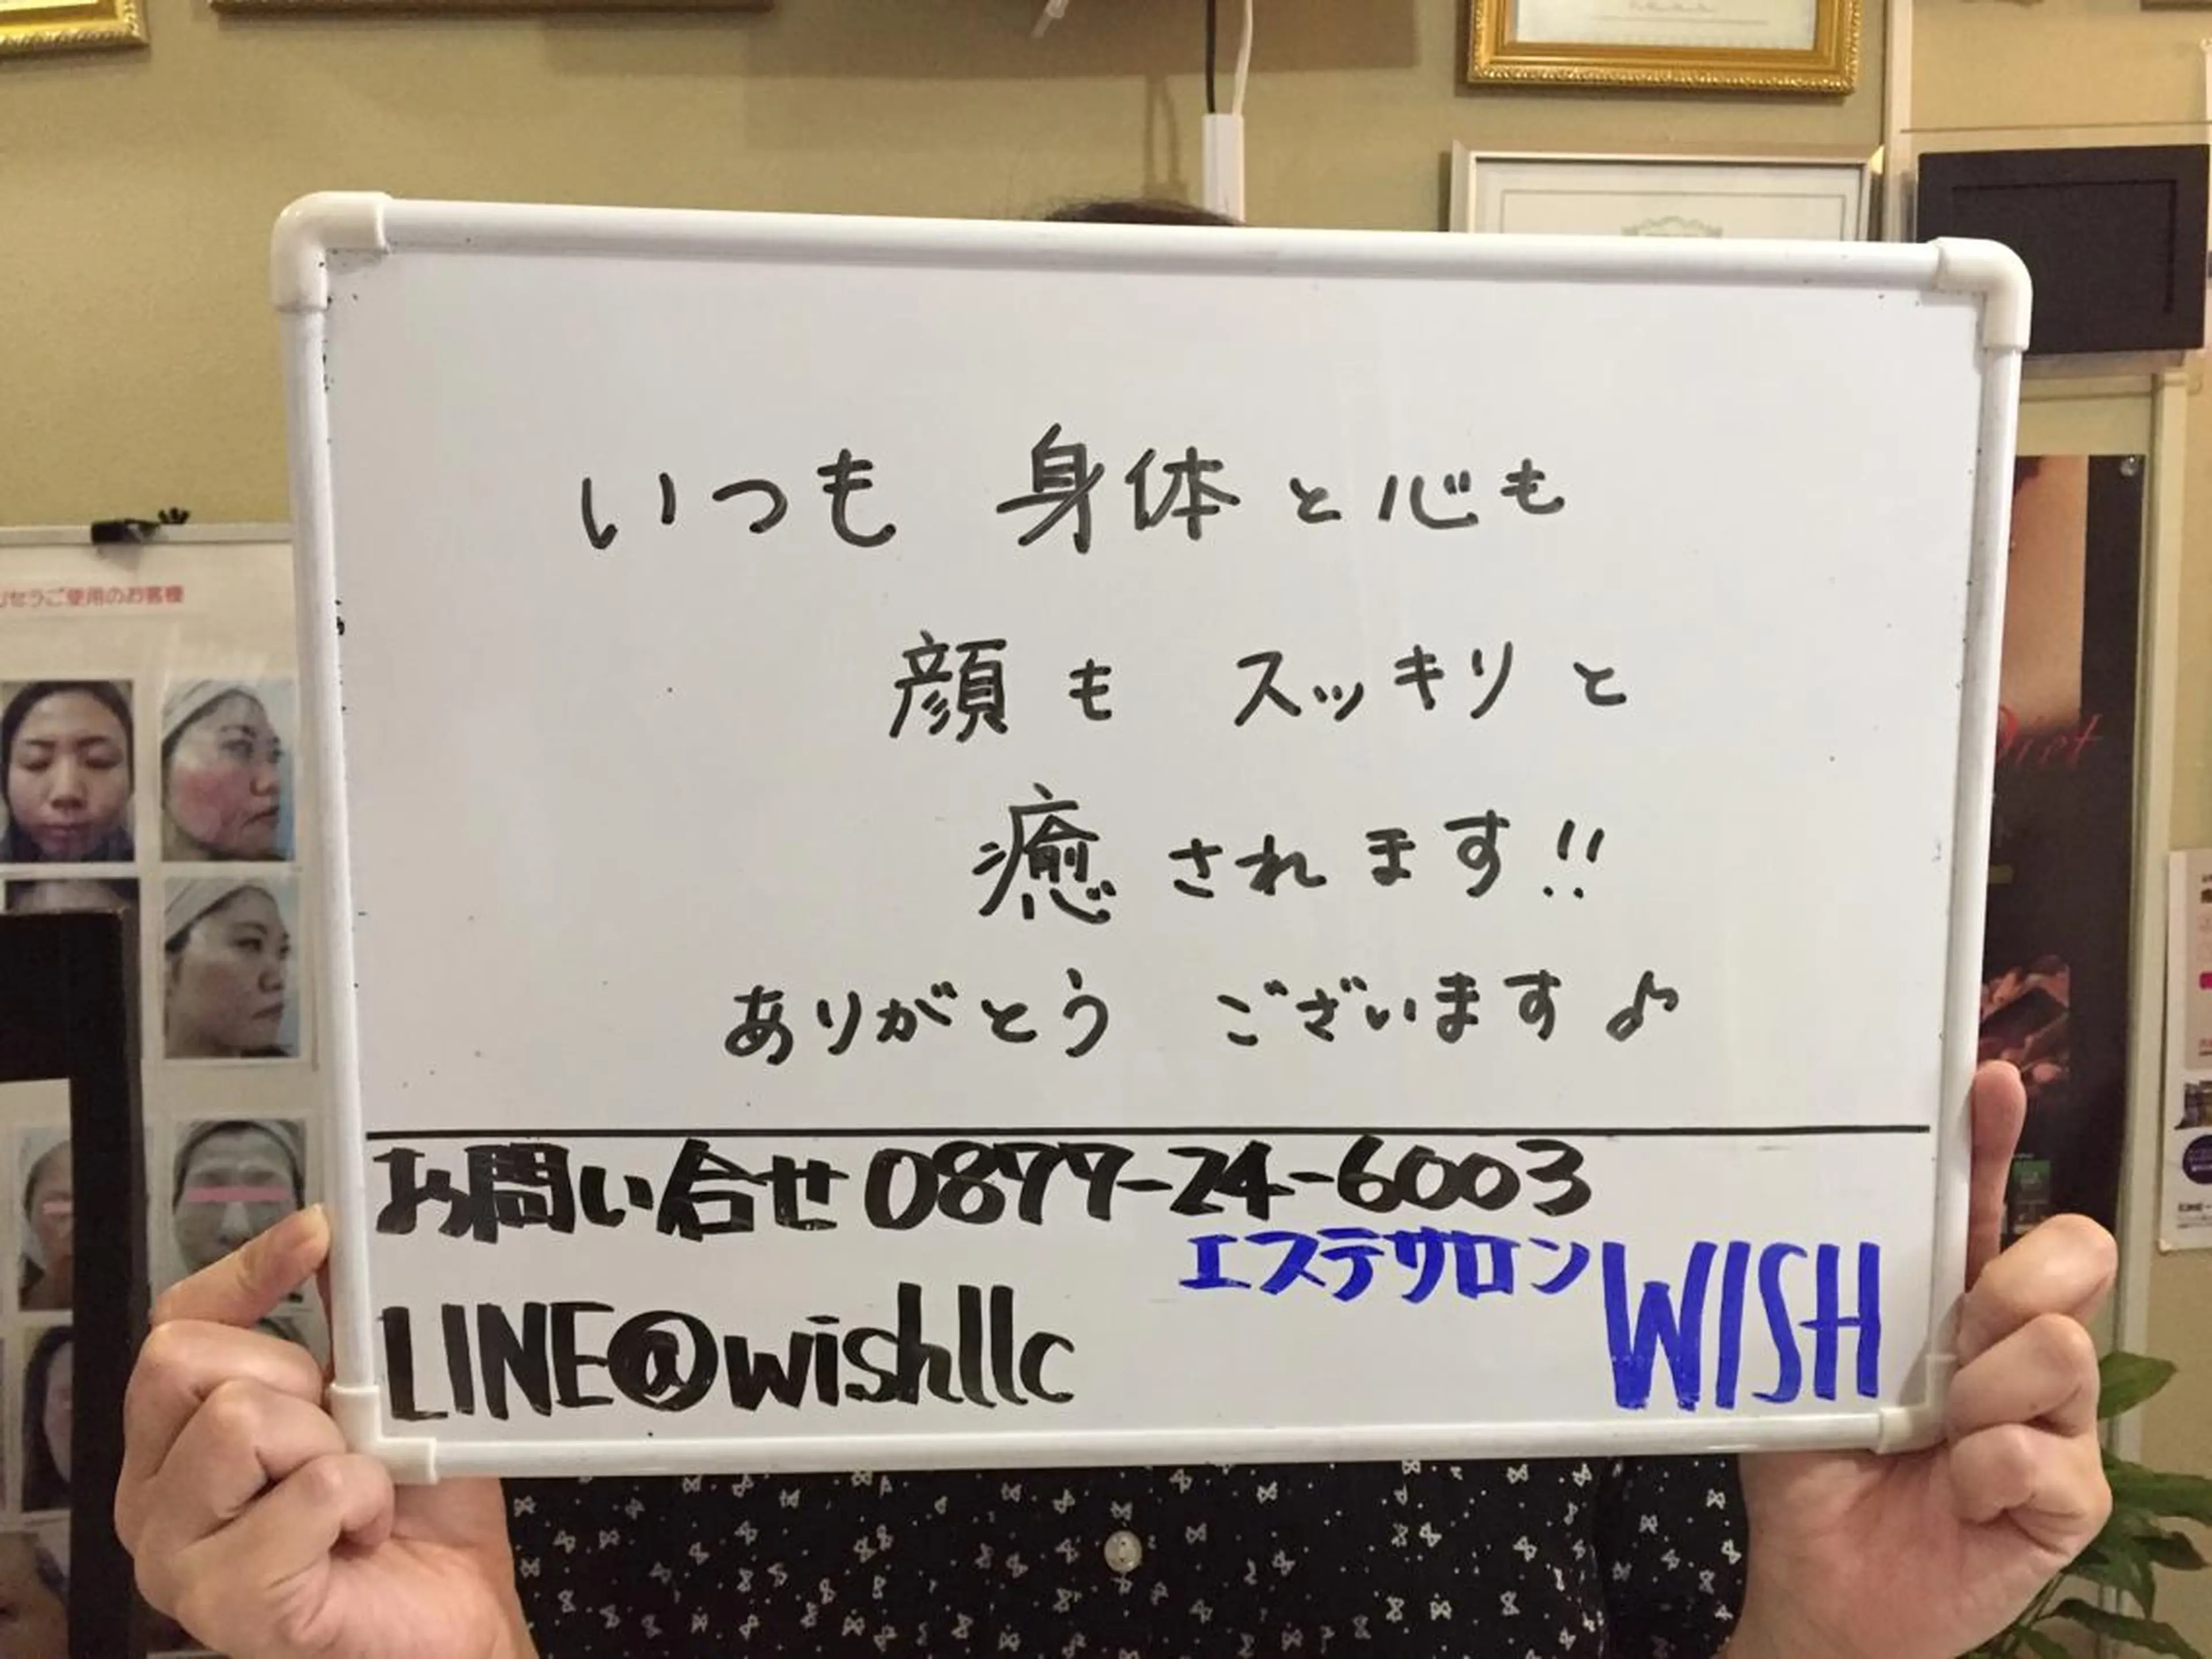 いつも 身体と心も
顔も スッキリと
癒されます!!
ありがとう ございます♪
お問い合せ 0877-24-6003
エステサロン WISH
LINE@wishllc
セラご使用のお客様
Diet